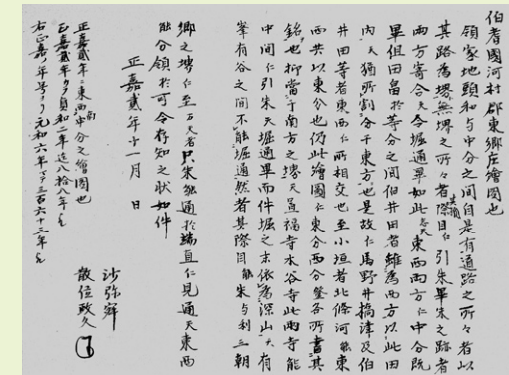 伯耆國河村郡東郷庄繪圖也
領家地頭和与中分之間自是有道路之所々者以
其路為堺無堺之所々者其際目仁引朱畢朱之跡者
両方寄合天令堀通畢如此之天東西両方仁中分既
畢但田畠於等分之間伯井田者雖為西方以此田
内天猶所割分于東方也是故仁馬野井橋津及伯
井田等者東西仁所相交也至小垣者北條河能東
西共以東分也仍此繪圖仁東分西分各所書其
銘也抑當于南方之堺天置福寺木谷寺此両寺能
中間仁引朱天堀通畢而件堀之末依為深山天有
峯有谷之間不能堀通然者其際目能朱与利三朝
郷之堺仁至万天者只朱能通於端直仁見通天東西
能分領於可令存知之状如件
正嘉貳年十一月 日
沙弥
散位政久
正嘉貳年東西両中分之繪圖也
正嘉貳年ヨリ貞和二年迄八拾八年
右正嘉ノ年号ヨリ元和六年マテ三百六十三年